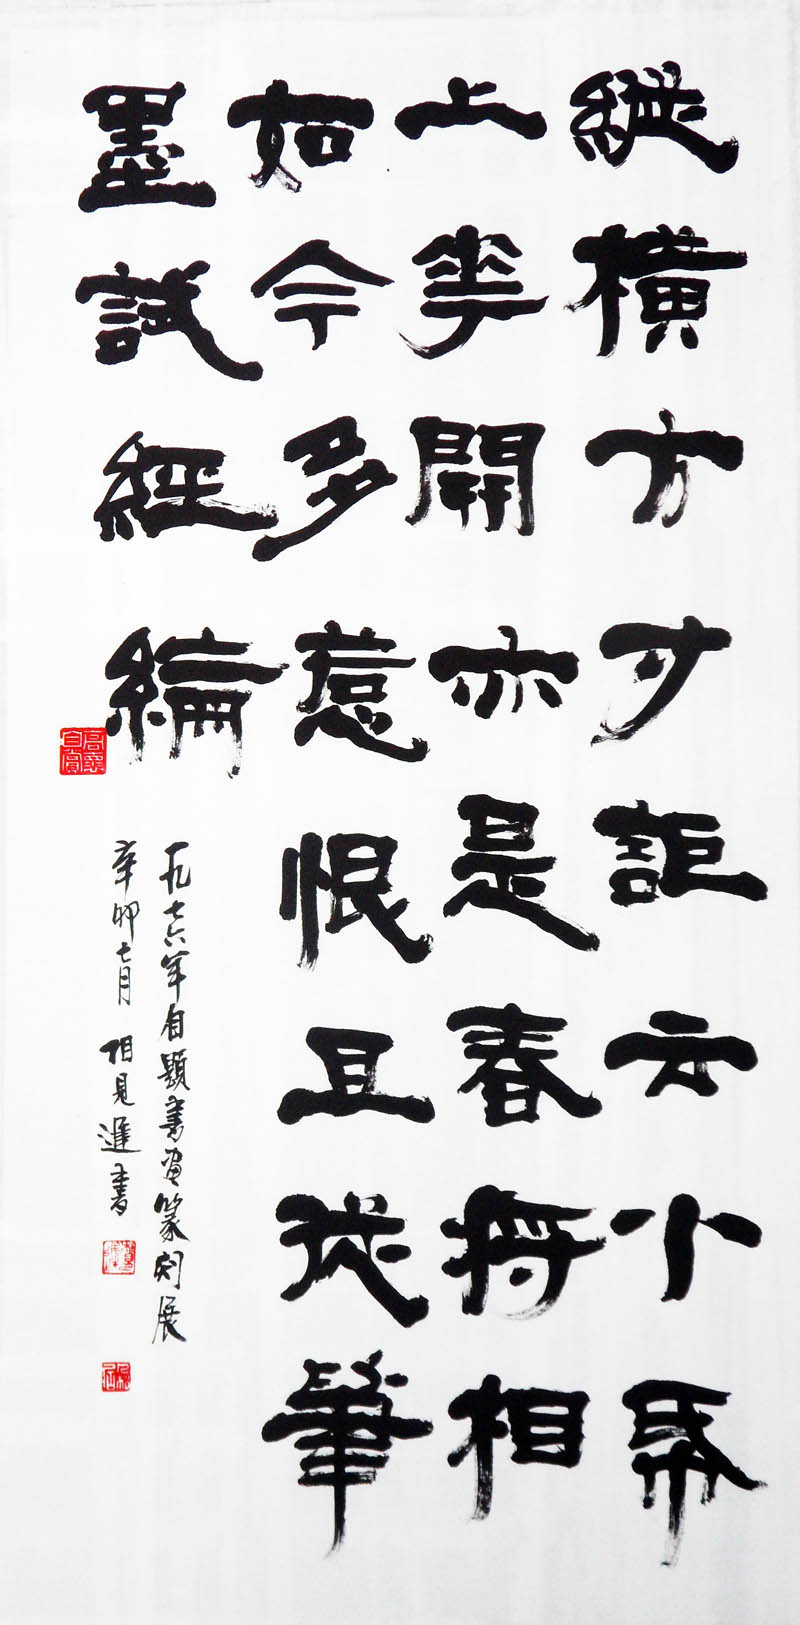 縱橫方寸詎云小帋
上華開亦是春將相
如今多惹恨且從筆
墨試經綸
一九七六年自題書画篆刻展
辛卯七月 相見進書